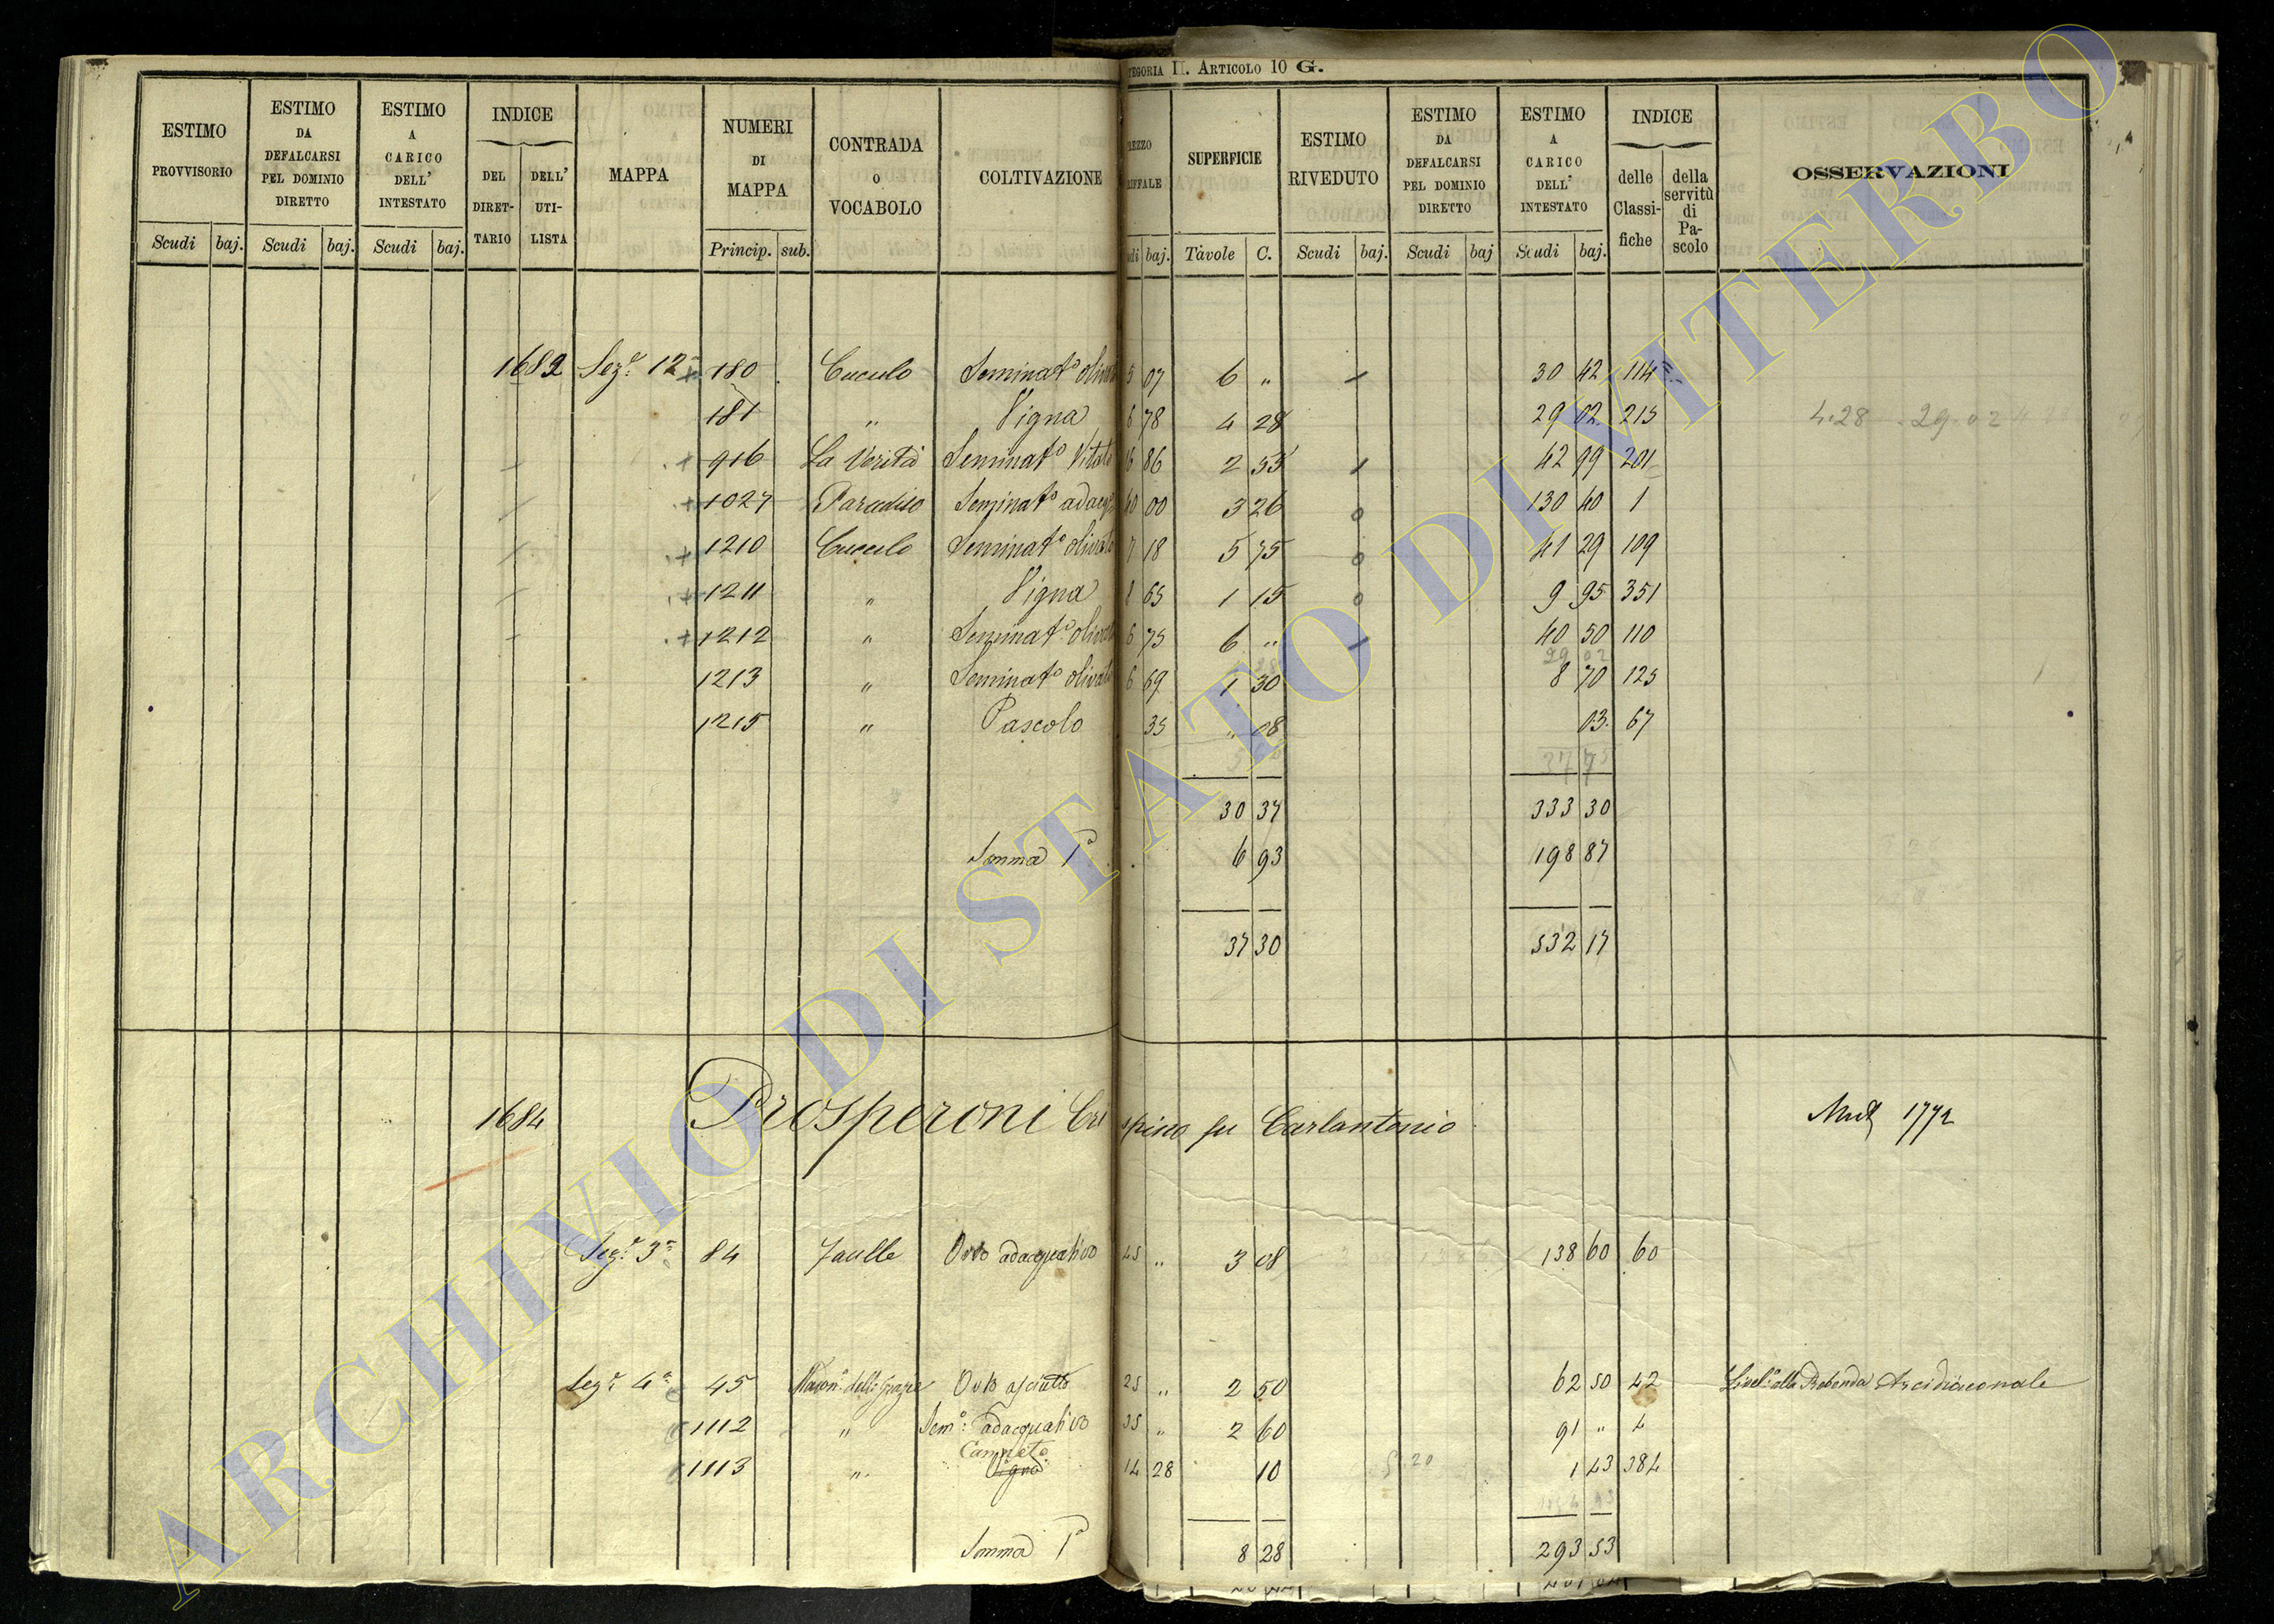 TEGORIA II. ARTICOLO 10 G.
ESTIMO PROVVISORIO
ESTIMO DA DEFALCARSI PEL DOMINIO DIRETTO
ESTIMO A CARICO DELL' INTESTATO
INDICE
DEL DIRET-TARIO
DELL' UTI-LISTA
MAPPA
NUMERI DI MAPPA
CONTRADA O VOCABOLO
COLTIVAZIONE
REZZO
RIFFALE
SUPERFICIE
ESTIMO RIVEDUTO
ESTIMO DA DEFALCARSI PEL DOMINIO DIRETTO
ESTIMO A CARICO DELL' INTESTATO
INDICE
delle Classi-fiche
della servitù di Pa-scolo
OSSERVAZIONI
Scudi baj. Scudi baj. Scudi baj. Princip. sub. di baj. Tavole C. Scudi baj. Scudi baj Scudi baj.
1682 Sezᵉ 12ª + 180 Cuculo Seminatº olivato 5 07 6 „ 30 42 114
181 „ Vigna 6 78 4 28 29 02 215 4.28 29.02
+ 916 La Verità Seminatº Vitato 16 86 2 55 42 99 201
+ 1027 Paradiso Seminatº adacq 40 00 3 26 130 40 1
+ 1210 Cuculo Seminatº olivato 7 18 5 75 41 29 109
+ 1211 „ Vigna 8 65 1 15 9 95 351
+ 1212 „ Seminatº olivato 6 75 6 „ 40 50 110
29 02
1213 „ Seminatº olivato 6 69 1 30 8 70 125
1215 „ Pascolo 35 „ 08 03 67
30 37 333 30
Somma Pª 6 93 198 87
37 30 532 17
1684 Prosperoni Crispino fu Carlantonio 1772
Sezᵉ 3ª 84 Faulle Orto adacquativo 45 „ 3 08 138 60 60
Sezᵉ 4ª 45 Madonª delle Grazie Orto asciutto 25 „ 2 50 62 50 42 Livelº alla Prebenda Arcidiaconale
1112 „ Semº: adacquativo 35 „ 2 60 91 „ 4
Canneto
1113 „ Vigna 14 28 10 1 43 384
Somma Pª 8 28 293 53
ARCHIVIO DI STATO DI VITERBO